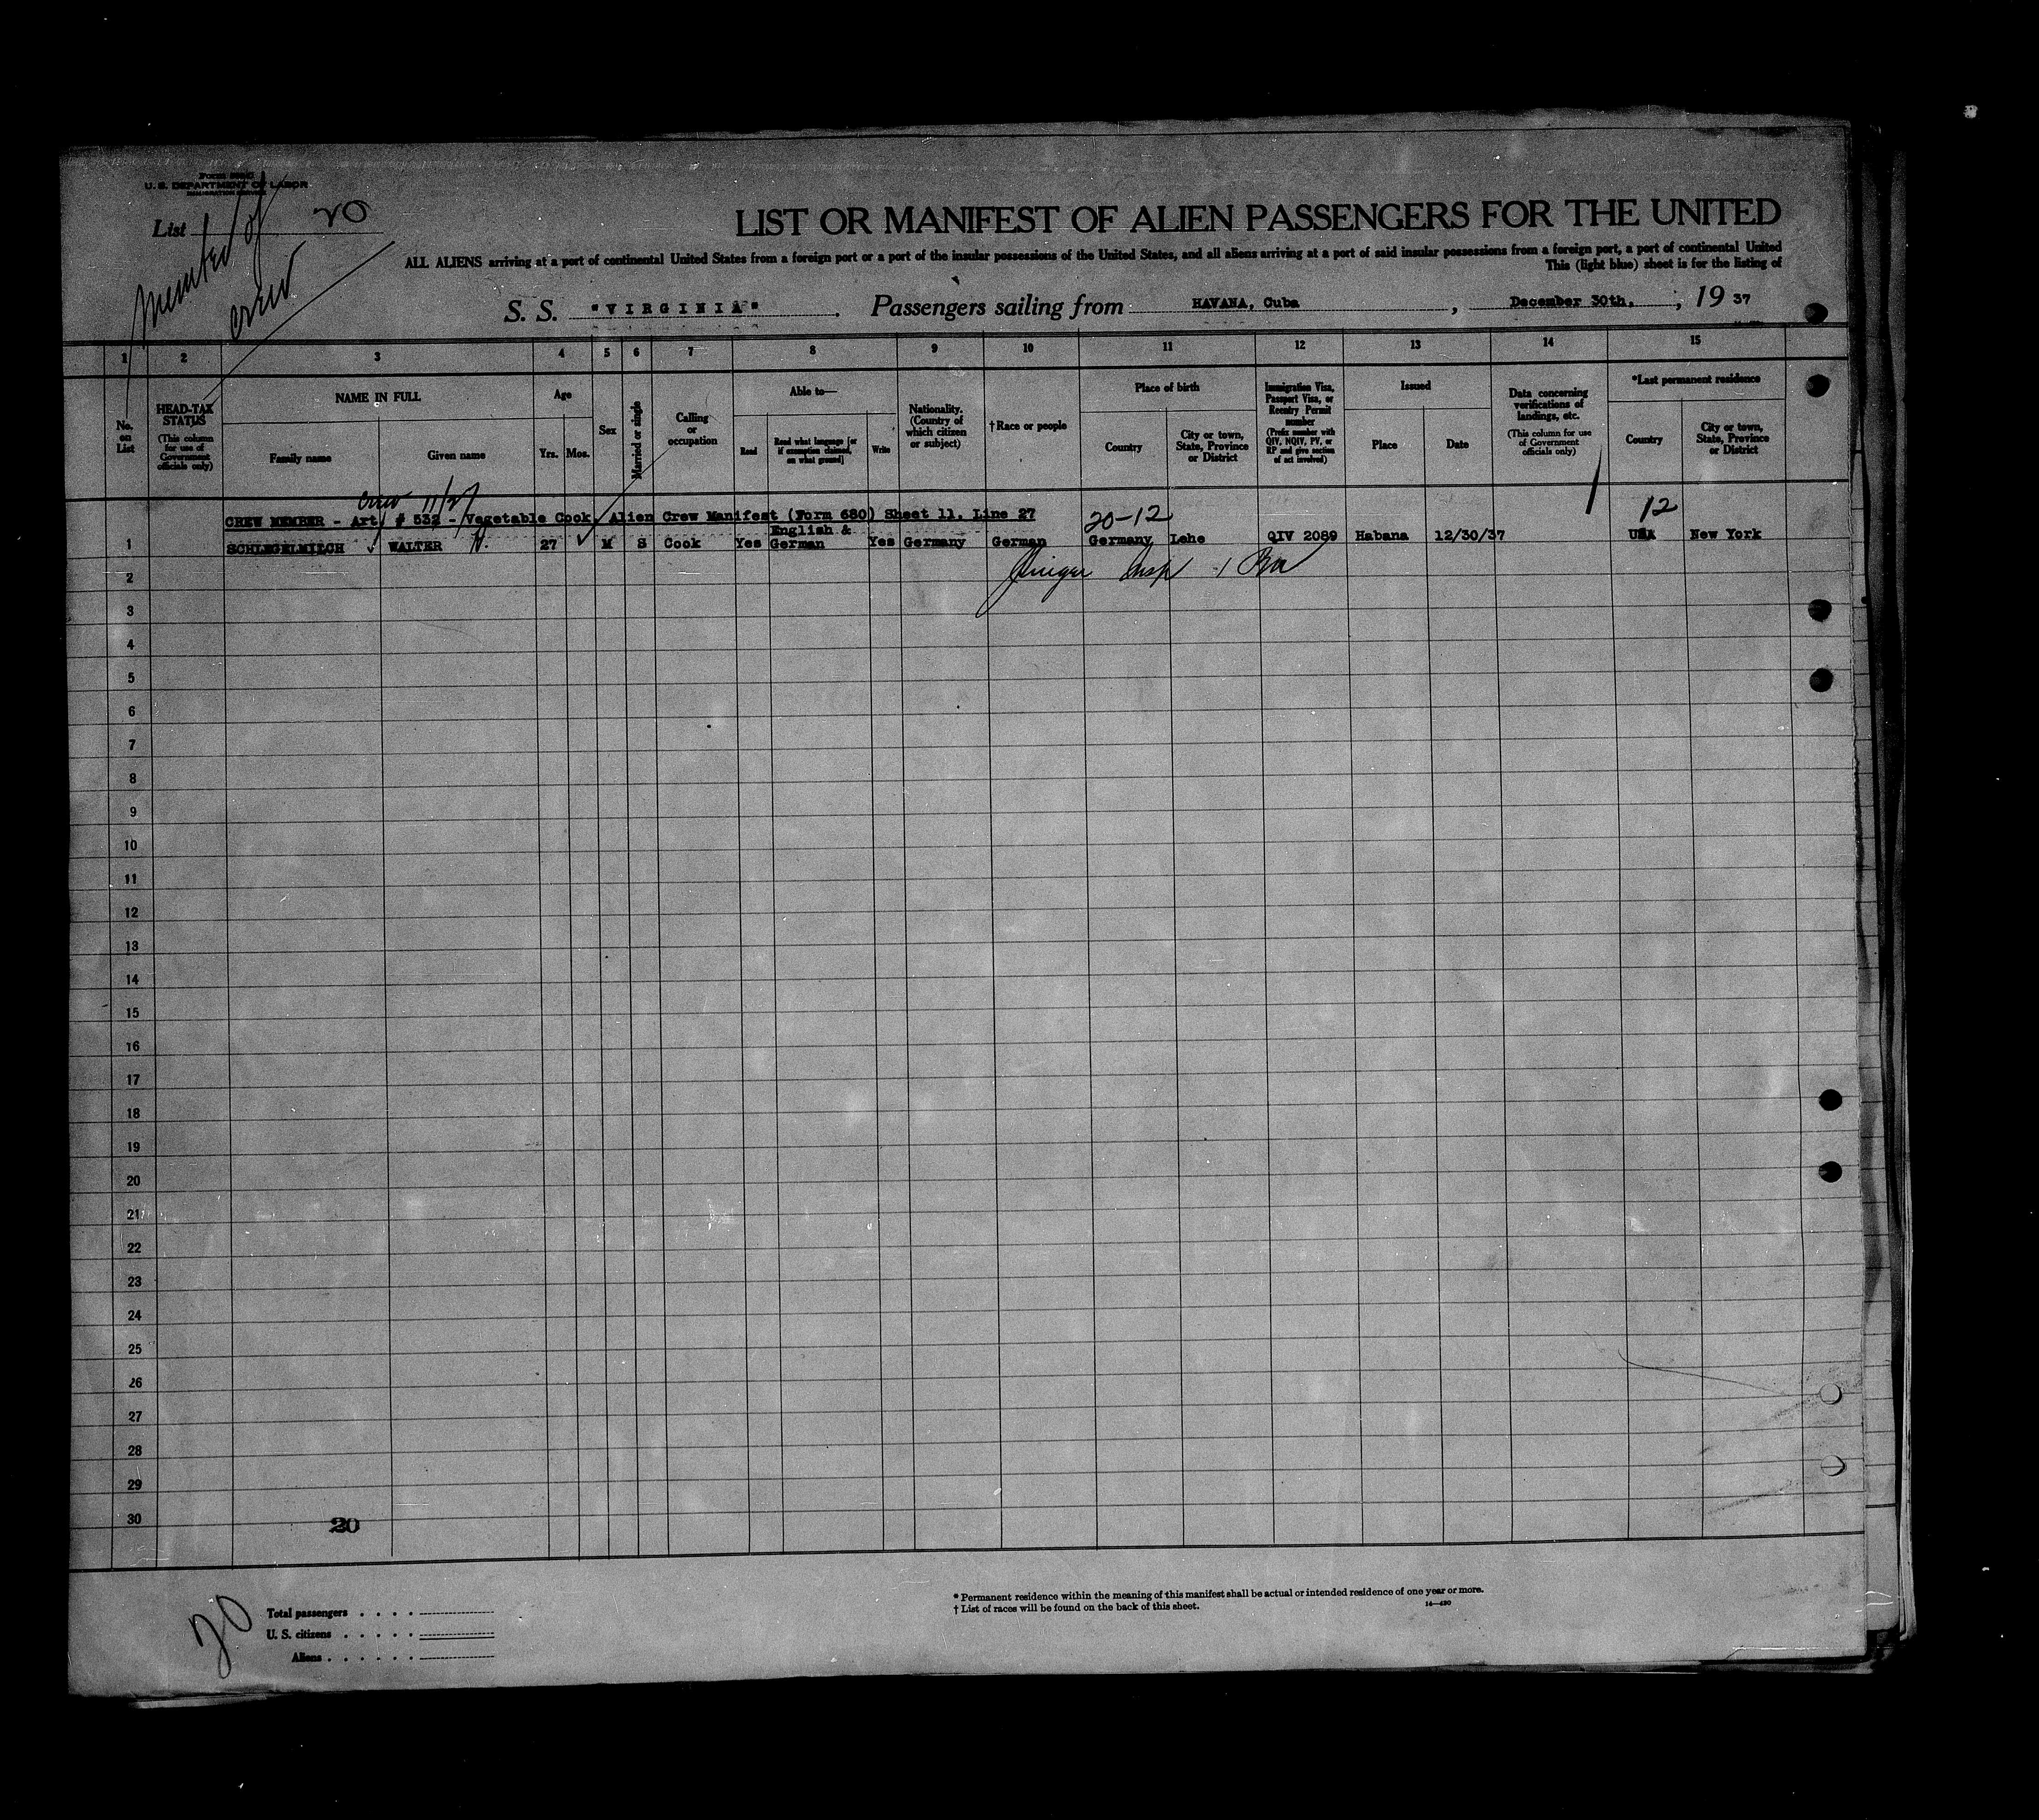 U. S. DEPARTMENT OF LABOR
IMMIGRATION SERVICE
List 20
Member of
crew
LIST OR MANIFEST OF ALIEN PASSENGERS FOR THE UNITED
ALL ALIENS arriving at a port of continental United States from a foreign port or a port of the insular possessions of the United States, and all aliens arriving at a port of said insular possessions from a foreign port, a port of continental United
This (light blue) sheet is for the listing of
S. S. "VIRGINIA". Passengers sailing from HAVANA, Cuba, December 30th., 19 37
1 2 3 4 5 6 7 8 9 10 11 12 13 14 15
No. on List
HEAD-TAX STATUS
(This column for use of Government officials only)
NAME IN FULL
Family name
Given name
Age
Yrs. Mos.
Sex
Married or single
Calling or occupation
Able to—
Read
Read what language [or if exemption claimed, on what ground]
Write
Nationality. (Country of which citizen or subject)
†Race or people
Place of birth
Country
City or town, State, Province or District
Immigration Visa, Passport Visa, or Reentry Permit number
(Prefix number with QIV, NQIV, PV, or RP and give section of act involved)
Issued
Place
Date
Data concerning verifications of landings, etc.
(This column for use of Government officials only)
*Last permanent residence
Country
City or town, State, Province or District
crew 11/27
CREW MEMBER - Art. # 532 - Vegetable Cook, Alien Crew Manifest (Form 680) Sheet 11, Line 27
20-12
12
1 SCHLEGELMILCH WALTER H. 27 M S Cook Yes English & German Yes Germany German Germany Lehe QIV 2089 Habana 12/30/37 USA New York
Insp
2
3
4
5
6
7
8
9
10
11
12
13
14
15
16
17
18
19
20
21
22
23
24
25
26
27
28
29
30
20
20
Total passengers
U. S. citizens
Aliens
* Permanent residence within the meaning of this manifest shall be actual or intended residence of one year or more.
† List of races will be found on the back of this sheet.
14—430